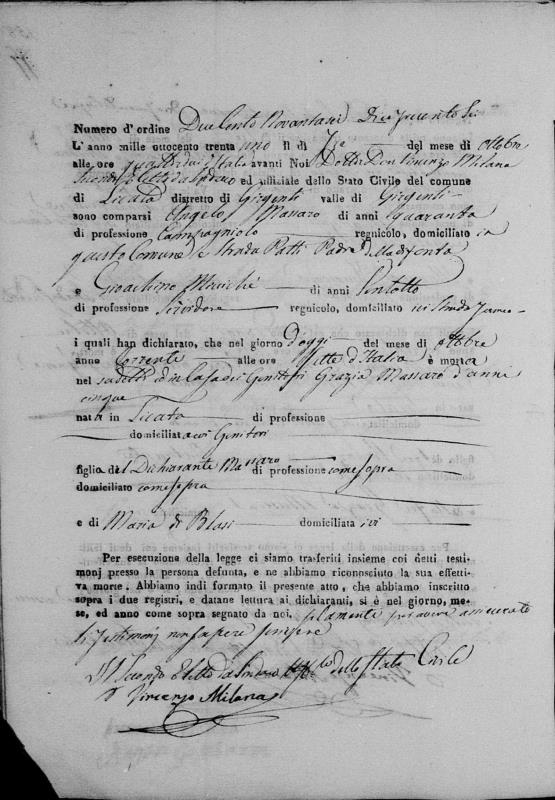 Numero d' ordine Due Cento Novantasei
L' anno mille ottocento trenta uno Il dì del mese di Ottobre
alle ore d'Italia avanti Noi Dottor Don Vincenzo Milana
Secondo Eletto ed uffiziale dello Stato Civile del comune
di Licata distretto di Girgenti valle di Girgenti
sono comparsi Angelo Massaro di anni Quaranta
di professione Campagniolo regnicolo, domiciliato in
questo Comune Strada Patti Padre della defonta
e Gioachino di anni Ventotto
di professione Servidore regnicolo, domiciliato ivi Strada
i quali han dichiarato, che nel giorno d'oggi del mese di Ottobre
anno Corrente alle ore Sette d'Italia è morta
nel sudetto dì in Casa dei Genitori Grazia Massaro d'anni
cinque
nata in Licata di professione
domiciliata coi Genitori
figlia del Dichiarante Massaro di professione come sopra
domiciliato come sopra
e di Maria di Blasi domiciliata ivi
Per esecuzione della legge ci siamo trasferiti insieme coi detti testi-
monj presso la persona defunta, e ne abbiamo riconosciuto la sua effetti-
va morte. Abbiamo indi formato il presente atto, che abbiamo inscritto
sopra i due registri, e datane lettura ai dichiaranti, si è nel giorno, me-
se, ed anno come sopra segnato da noi, solamente per avere assicurato
li Testimonj non sapere scrivere
Il Secondo Eletto dello Stato Civile
D. Vincenzo Milana